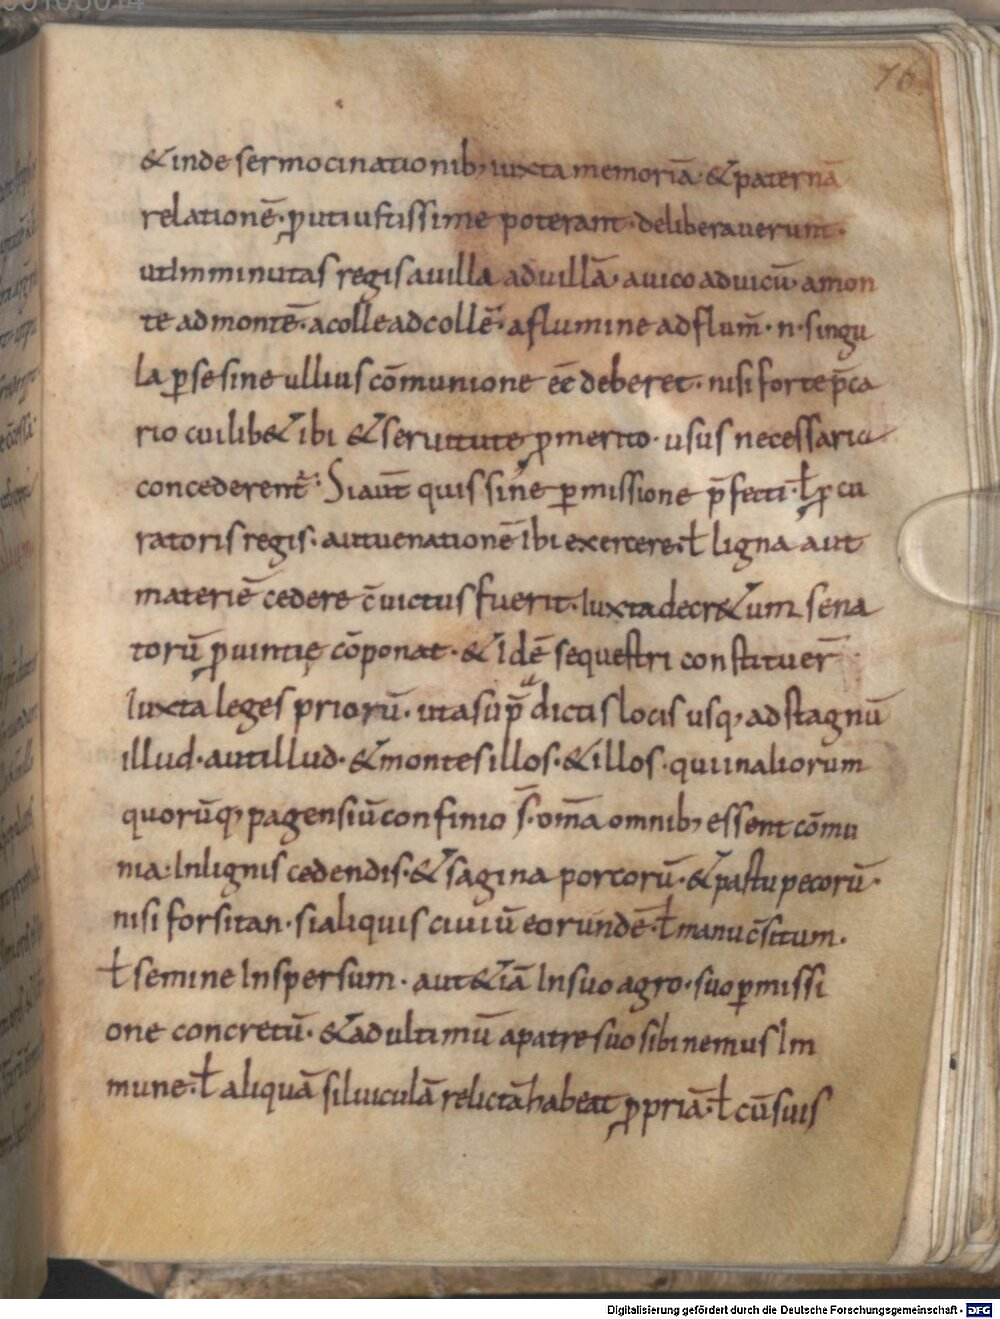 76
& inde sermocinationib; iuxta memoriā & paternā
relationē· ꝓut iustissime poterant· deliberauerunt·
ut Imminutas regis a uilla ad uillā· a uico ad uicū· a mon
te ad montē· a colle ad collē· a flumine ad flum̄· n· singu
la ꝑ se sine ullius cōmunione eē deberet· nisi forte p̄ca
rio cuilib& ibi & seruitute ꝓ merito· usus necessario
concederent̄· Si aut̄ quis sine ꝑmissione p̄fecti· ł ꝓcu
ratoris regis· aut uenationē Ibi exercere· ł ligna aut
materiē cedere c̄uictus fuerit· Iuxta decr&um sena
torū ꝓuintię cōponat· & Idē sequestri constituer̄·
Iuxta leges priorū· ut a sup̄dictis locis usq; ad stagnū
illud· aut illud· & montes illos· & illos· qui in aliorum
quorūq; pagensiū confinio s̄· om̄a omnib; essent cōmu
nia· In lignis cedendis· & sagina porcorū· & pastu pecorū·
nisi forsitan· si aliquis ciuiū eorundē· ł manu c̄situm·
ł semine Inspersum· aut &iā In suo agro· suo ꝑmissi
one concretū· & ad ultimū a patre suo sibi nemus Im
mune· ł aliquā siluiculā relictā habeat ꝓpriā· ł cū suis
Digitalisierung gefördert durch die Deutsche Forschungsgemeinschaft - DFG